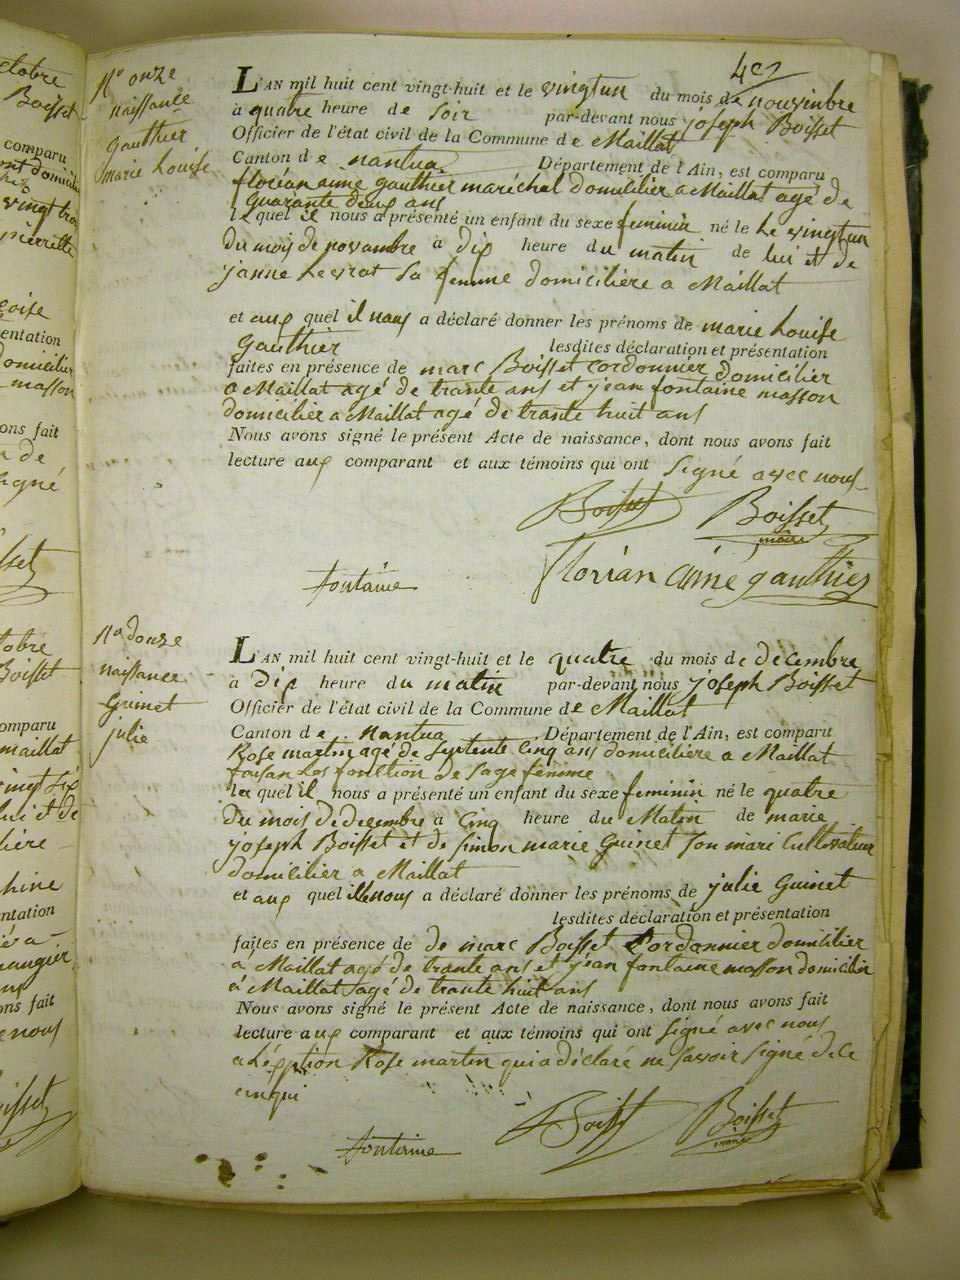 402
N° onze
naissance
gauthier
marie Louise
L'AN mil huit cent vingt-huit et le vingtun du mois de novembre
à quatre heure de soir par-devant nous joseph Boisset
Officier de l'état civil de la Commune de Maillat
Canton de nantua Département de l'Ain, est comparu
florian aimé gauthier maréchal domicilier a Maillat agé de
quarante deux ans
lequel il nous a présenté un enfant du sexe feminin né le Le vingtun
du mois de novembre à dix heure du matin de lui et de
janne Levrat sa femme domicilière a Maillat
et aux quel il nous a déclaré donner les prénoms de marie Louise
gauthier lesdites déclaration et présentation
faites en présence de marc Boisset cordonnier domicilier
a Maillat agé de trante ans et jean fontaine masson
domicilier a Maillat agé de trante huit ans
Nous avons signé le présent Acte de naissance, dont nous avons fait
lecture aux comparant et aux témoins qui ont signé avec nous
Boisset Boisset
maire
fontaine florian aimé gauthier
N° douze
naissance
Guinet
julie
L'AN mil huit cent vingt-huit et le quatre du mois de decembre
à dix heure du matin par-devant nous joseph Boisset
Officier de l'état civil de la Commune de Maillat
Canton de nantua, Département de l'Ain, est comparu
Rose martin agé de septente cinq ans domicilière a Maillat
faisan les fonction de sage femme
la quel il nous a présenté un enfant du sexe feminin né le quatre
du mois de decembre à cinq heure du Matin de marie
joseph Boisset et de simon marie Guinet son mari Cultivateur
domicilier a Maillat
et aux quel ille nous a déclaré donner les prénoms de julie Guinet
lesdites déclaration et présentation
faites en présence de de marc Boisset Cordonnier domicilier
a Maillat agé de trante ans et jean fontaine masson domicilier
a Maillat agé de trante huit ans
Nous avons signé le présent Acte de naissance, dont nous avons fait
lecture aux comparant et aux témoins qui ont signé avec nous
a Léxption Rose martin qui a déclaré ne savoir signé de ce
enqui
Boisset Boisset
maire
fontaine